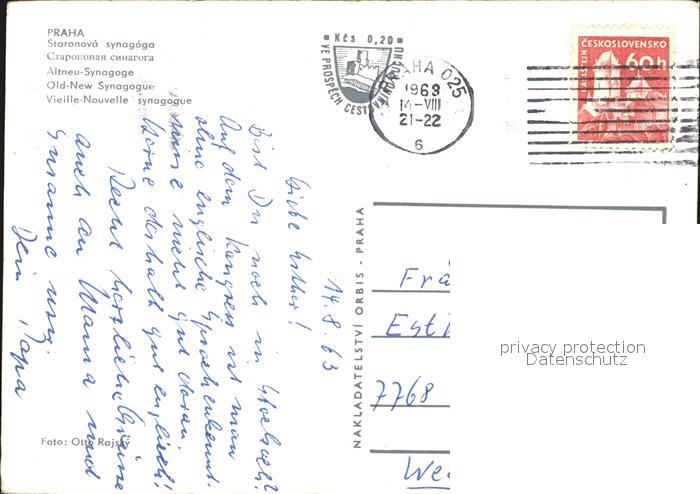 PRAHA
Staronová synagóga
Староновая синагога
Altneu-Synagoge
Old-New Synagogue
Vieille-Nouvelle synagogue
Kčs 0,20
VE PROSPĚCH CESTOVNÍHO RUCHU
PRAHA 025
1963
14-VIII
21-22
6
ČESKOSLOVENSKO
60h
KARLŠTEJN
14.8.63
Liebe Esther!
Bist Du noch in Stockach?
Auf dem Kongress ist man
ohne englische Sprachkennt-
nisse nicht gut daran.
Lerne deshalb gut englisch!
Recht herzliche Grüsse
auch an Mama und
Susanne usw.
Dein Papa
NAKLADATELSTVÍ ORBIS - PRAHA
Frä
Est
7768
We
privacy protection
Datenschutz
Foto: Otto Rajský